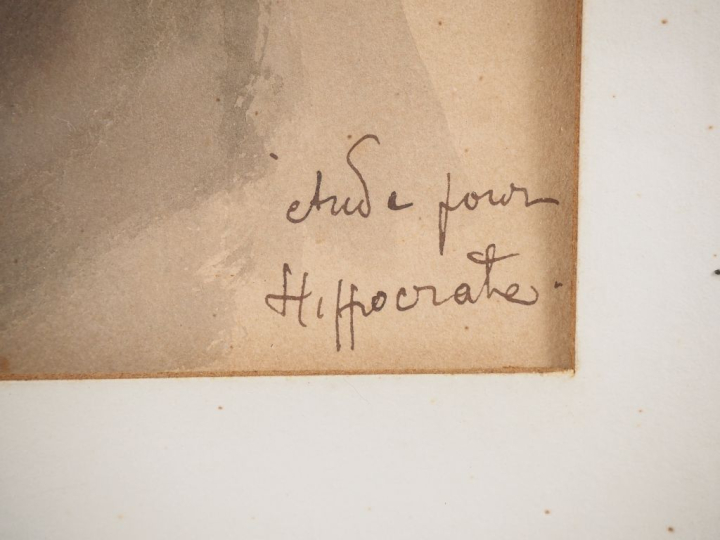 étude pour
Hippocrate.